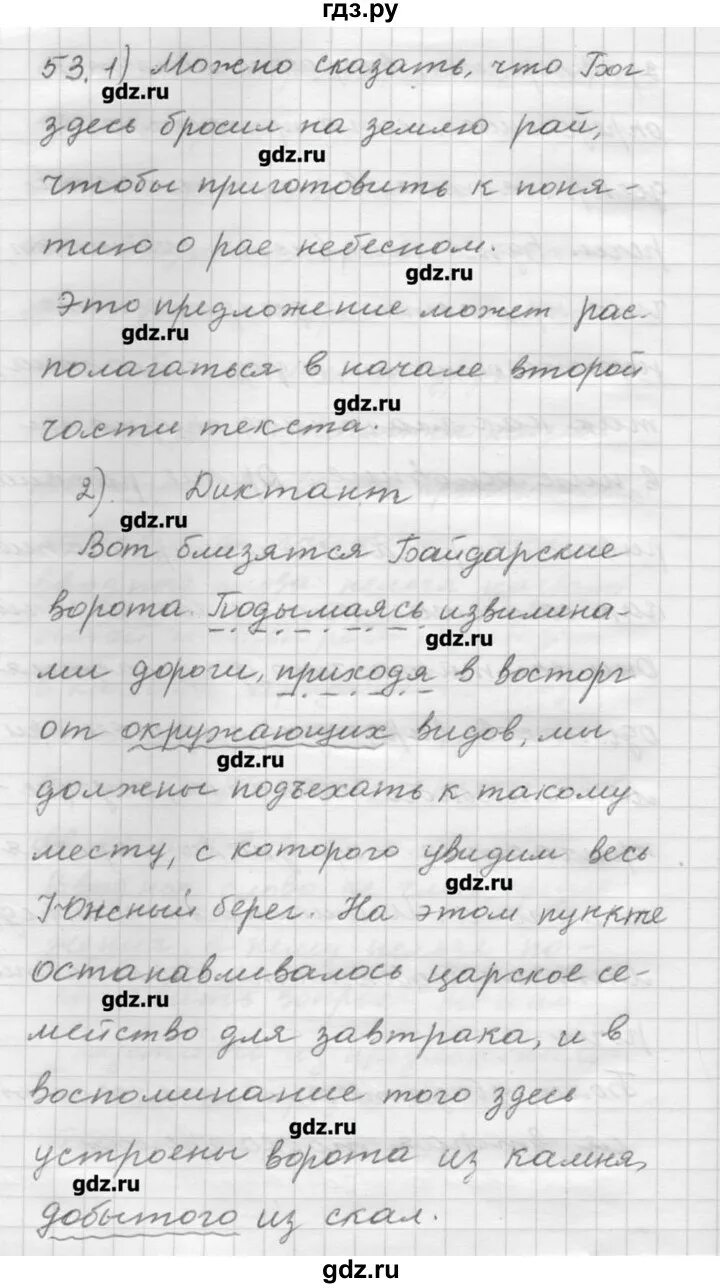 гдз.ру
53. 1) Можно сказать, что Бог
gdz.ru
здесь бросил на землю рай,
gdz.ru
чтобы приготовить к поня-
тию о рае небесном.
gdz.ru
Это предложение может рас-
gdz.ru
полагаться в начале второй
gdz.ru
части текста.
2) Диктант
gdz.ru
Вот близятся Байдарские
ворота. Подымаясь извилина-
gdz.ru
ми дороги, приходя в восторг
от окружающих видов, мы
gdz.ru
должны подъехать к такому
месту, с которого увидим весь
gdz.ru
Южный берег. На этом пункте
останавливалось царское се-
gdz.ru
мейство для завтрака, и в
воспоминание того здесь
gdz.ru
устроены ворота из камня,
gdz.ru
добытого из скал.
gdz.ru